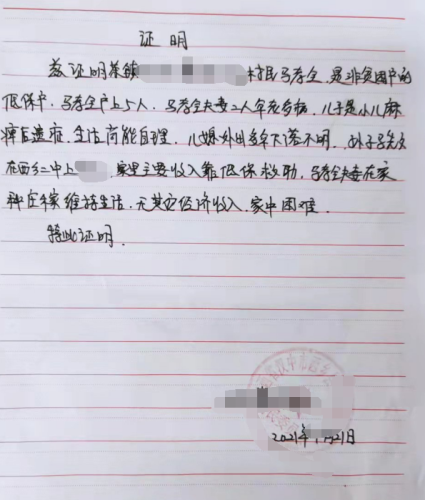 证明
兹证明茶镇 村民马存全,是非贫困户的
低保户,马存全户上5人,马存全夫妻2人年老多病,儿子是小儿麻
痹后遗症,生活尚能自理,儿媳外出多年下落不明,孙子马
在西乡二中上 ,家里主要收入靠低保救助,马存全夫妻在家
种庄稼维持生活,无其它经济收入,家中困难.
特此证明.
2021年 月21日